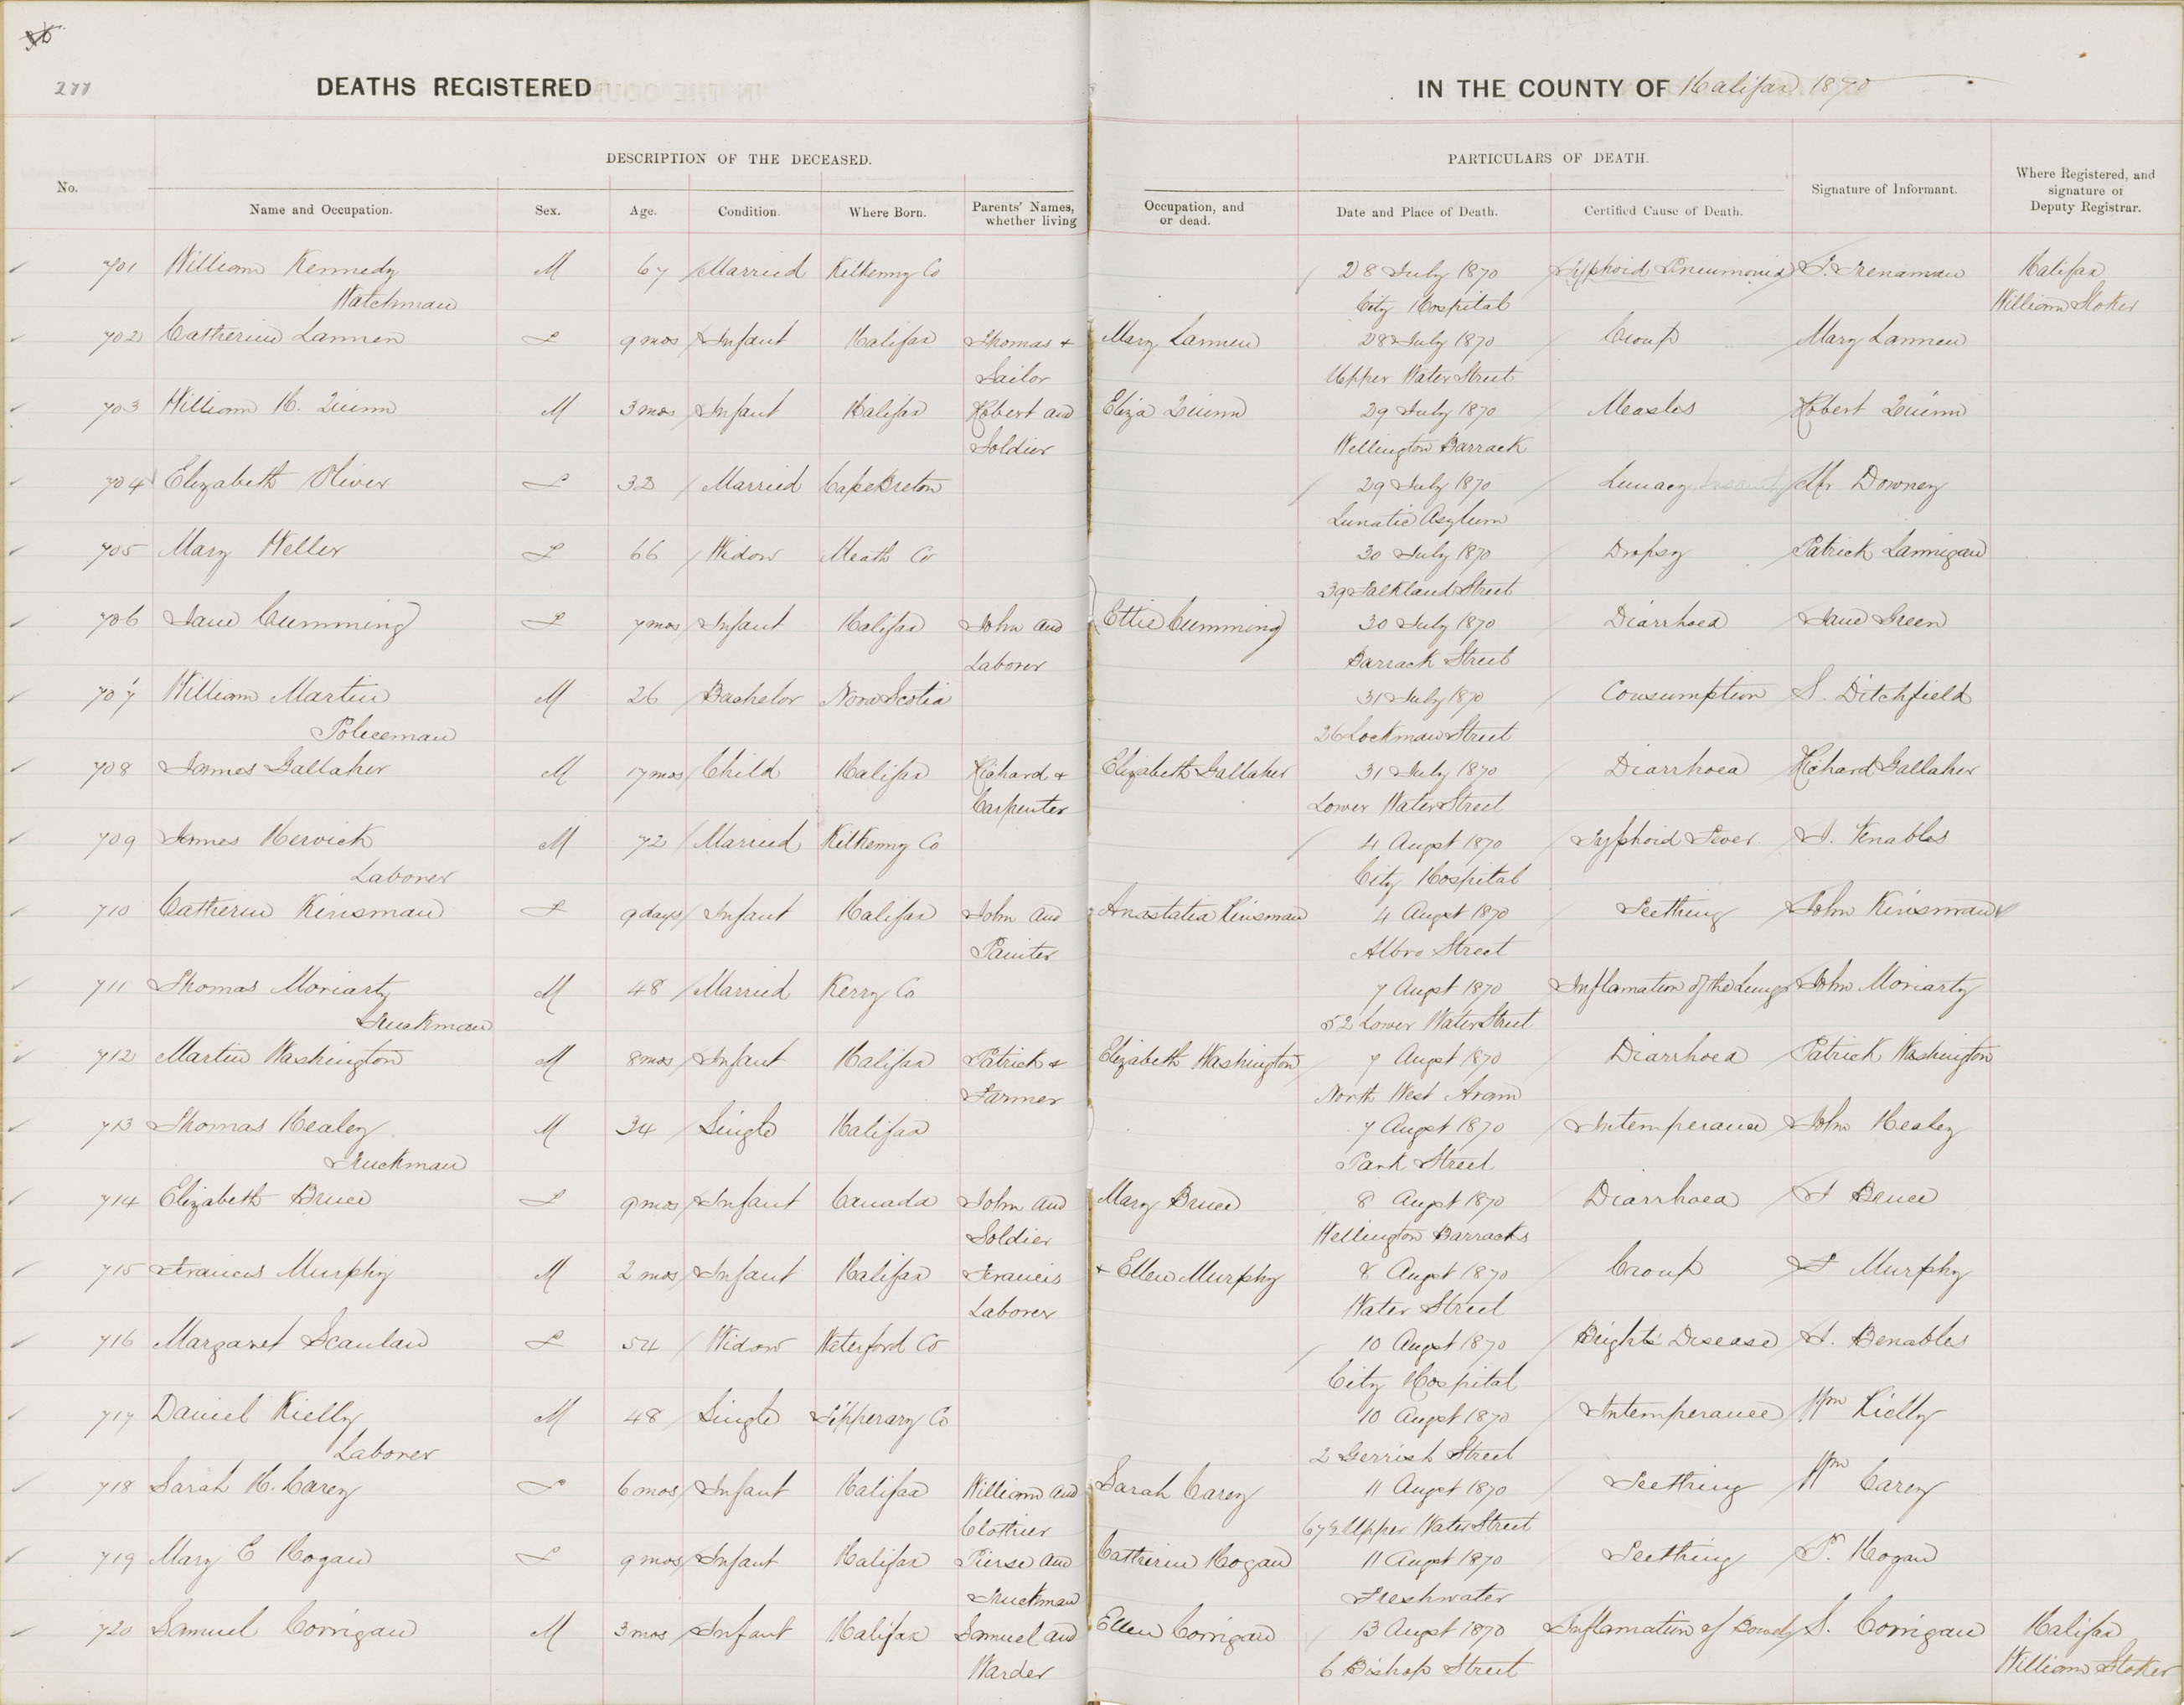 277
DEATHS REGISTERED IN THE COUNTY OF Halifax 1870
DESCRIPTION OF THE DECEASED. PARTICULARS OF DEATH.
No. Name and Occupation. Sex. Age. Condition. Where Born. Parents' Names, whether living Occupation, and or dead. Date and Place of Death. Certified Cause of Death. Signature of Informant. Where Registered, and signature of Deputy Registrar.
701 William Kennedy M 67 Married Kilkenny Co 28 July 1870 Typhoid Pneumonia T. Trenaman Halifax
Watchman City Hospital William Stoker
702 Catherine Lannen F 9 mos Infant Halifax Thomas + Mary Lannen 28 July 1870 Croup Mary Lannen
Sailor Upper Water Street
703 William H. Quinn M 3 mos Infant Halifax Robert and Eliza Quinn 29 July 1870 Measles Robert Quinn
Soldier Wellington Barrack
704 Elizabeth Oliver F 32 Married Cape Breton 29 July 1870 Lunacy Insanity Mr Downey
Lunatic Asylum
705 Mary Weller F 66 Widow Meath Co 30 July 1870 Dropsy Patrick Lannigan
39 Falkland Street
706 Jane Cumming F 7 mos Infant Halifax John and Ettie Cumming 30 July 1870 Diarrhoea Jane Green
Laborer Barrack Street
707 William Martin M 26 Bachelor Nova Scotia 31 July 1870 Consumption S. Ditchfield
Policeman 26 Lockman Street
708 James Gallaher M 17 mos Child Halifax Richard + Elizabeth Gallaher 31 July 1870 Diarrhoea Richard Gallaher
Carpenter Lower Water Street
709 James Hervick M 72 Married Kilkenny Co 4 Augst 1870 Typhoid Fever T. Venables
Laborer City Hospital
710 Catherine Kinsman F 9 days Infant Halifax John and Anastatia Kinsman 4 Augst 1870 Teething John Kinsman
Painter Albro Street
711 Thomas Moriarty M 48 Married Kerry Co 7 Augst 1870 Inflamation of the Lungs John Moriarty
Truckman 52 Lower Water Street
712 Martin Washington M 8 mos Infant Halifax Patrick + Elizabeth Washington 7 Augst 1870 Diarrhoea Patrick Washington
Farmer North West Aram
713 Thomas Healey M 34 Single Halifax 7 Augst 1870 Intemperance John Healey
Truckman Park Street
714 Elizabeth Bruce F 9 mos Infant Canada John and Mary Bruce 8 Augst 1870 Diarrhoea J Bruce
Soldier Wellington Barracks
715 Francis Murphy M 2 mos Infant Halifax Francis + Ellen Murphy 8 Augst 1870 Croup F Murphy
Laborer Water Street
716 Margaret Scanlan F 54 Widow Waterford Co 10 Augst 1870 Brights Disease T. Benables
City Hospital
717 Daniel Kielly M 48 Single Tipperary Co 10 Augst 1870 Intemperance Wm Kielly
Laborer 2 Gerrish Street
718 Sarah H. Carey F 6 mos Infant Halifax William and Sarah Carey 11 Augst 1870 Teething Wm Carey
Clothier 67½ Upper Water Street
719 Mary E Hogan F 9 mos Infant Halifax Pierse and Catherine Hogan 11 Augst 1870 Teething P. Hogan
Truckman Freshwater
720 Samuel Corrigan M 3 mos Infant Halifax Samuel and Ellen Corrigan 13 Augst 1870 Inflamation of Bowels S. Corrigan Halifax
Warder 6 Bishop Street William Stoker